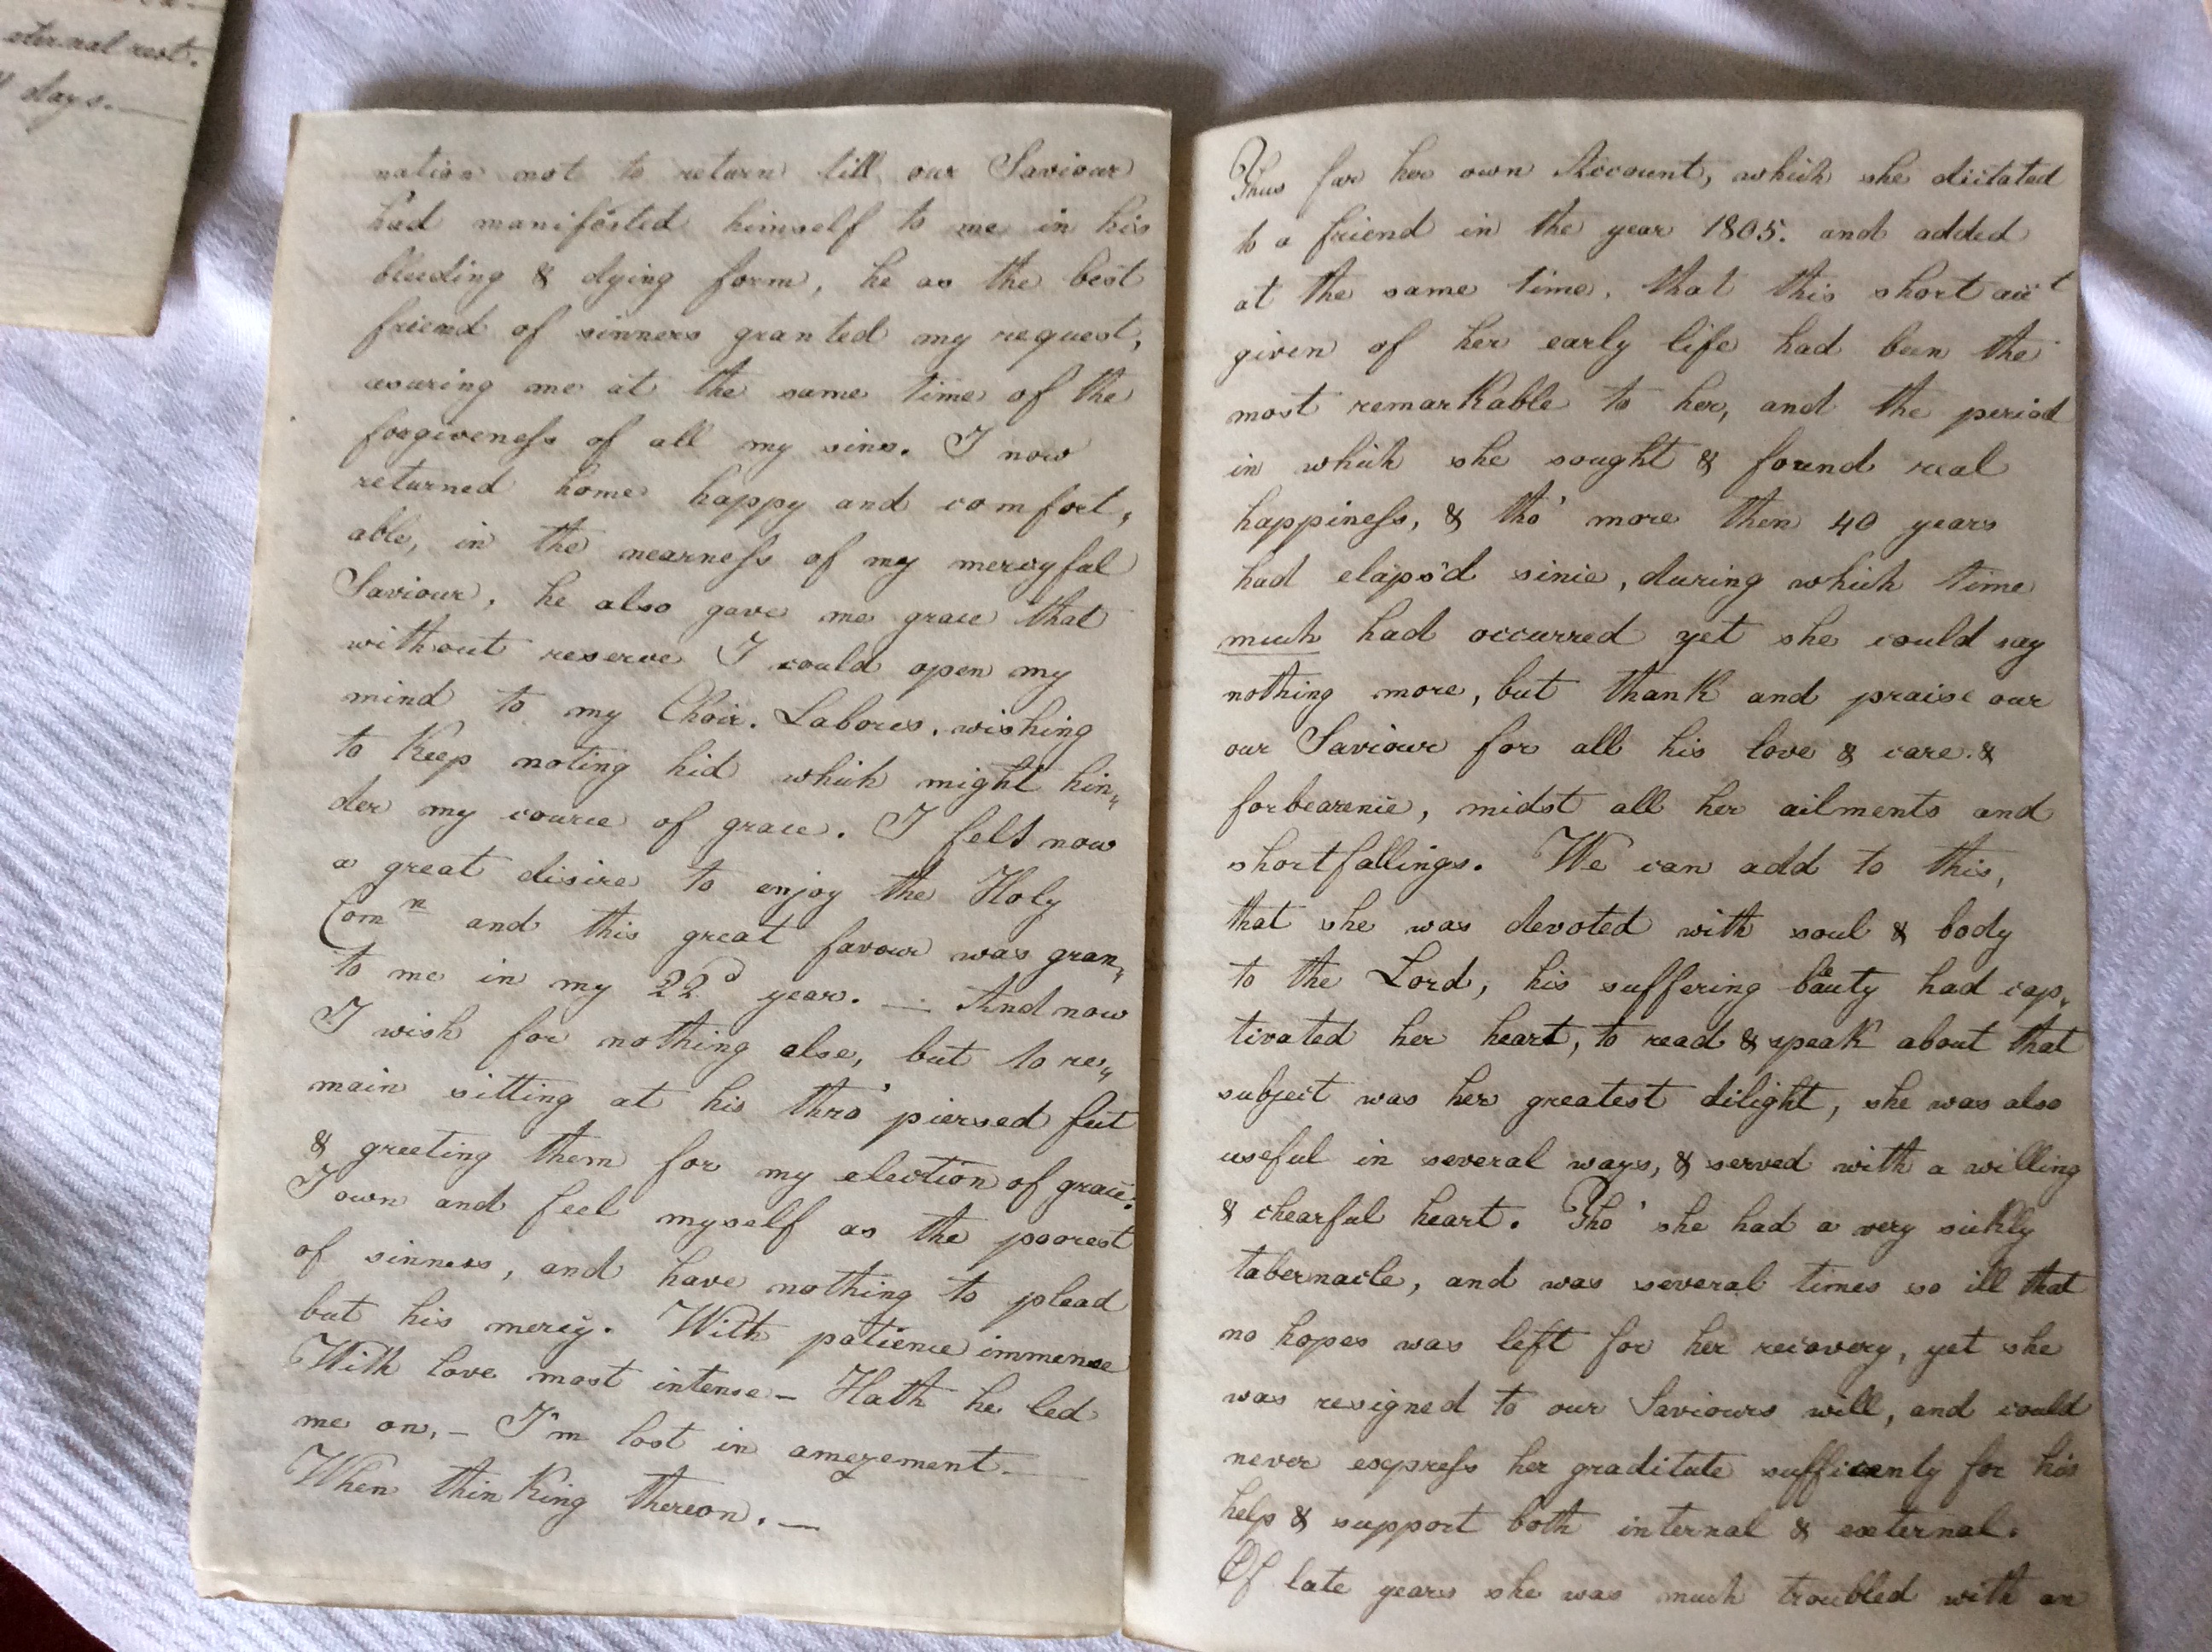 eternal rest.
days.—
nation not to return till our Saviour
had manifested himself to me in his
bleeding & dying form, he as the best
friend of sinners granted my request,
asuring me at the same time of the
forgiveness of all my sins. I now
returned home happy and comfort,
able, in the nearness of my mercyful
Saviour, he also gave me grace that
without reserve I could open my
mind to my Choir. Labores, wishing
to keep noting hid which might hin„
der my cource of grace. I felt now
a great disire to enjoy the Holy
Comn and this great favour was gran„
to me in my 22d year. — And now
I wish for nothing else, but to re„
main sitting at his thro' piersed feet
& greeting them for my election of grace.
I own and feel myself as the poorest
of sinners, and have nothing to plead
but his mercy. With patience immense
With love most intense — Hath he led
me on, — I'm lost in amezement. —
When thinking thereon. —
Thus far her own Account, which she dictated
to a friend in the year 1805. and added
at the same time, that this short acct
given of her early life had been the
most remarkable to her, and the period
in which she sought & found real
happiness, & tho' more then 40 years
had elaps'd since, during which time
much had occurred yet she could say
nothing more, but thank and praise our
our Saviour for all his love & care. &
forbearence, midst all her ailments and
shortfallings. We can add to this,
that she was devoted with soul & body
to the Lord, his suffering beauty had cap„
tivated her heart, to read & speak about that
subject was her greatest dilight, she was also
useful in several ways, & served with a willing
& chearful heart. Tho' she had a very sickly
tabernacle, and was several times so ill that
no hopes was left for her recovery, yet she
was resigned to our Saviours will, and could
never express her graditute sufficenly for his
help & support both internal & external.
Of late years she was much troubled with an